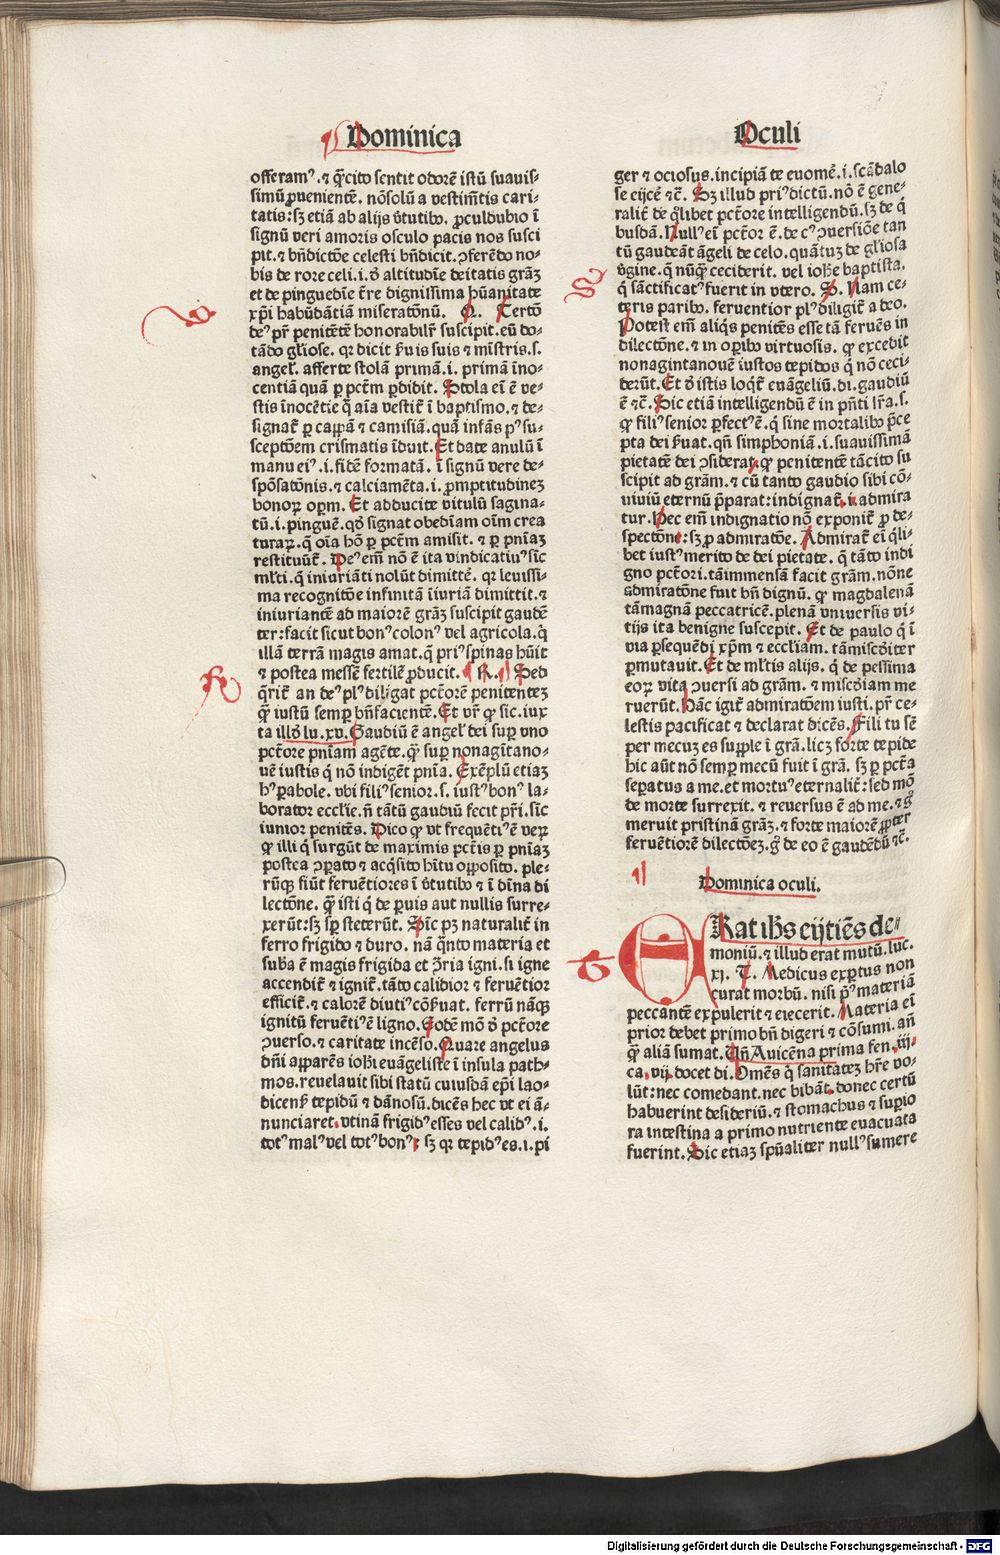 Dominica
offeramꝰ. ⁊ q̃cito sentit odorē istū suauis⸗
simū ꝓuenientē. nōsolū a vestimētis cari⸗
tatis: sꝫ etiā ab alijs v̄tutibꝰ. ꝓculdubio ī
signū veri amoris osculo pacis nos susci
pit. ⁊ bn̄dictōe celesti bn̄dicit. ꝯferēdo no⸗
bis de rore celi. i. d̄ altitudīe deitatis grāꝫ
et de pinguedīe t̄re dignissima hūanitate
xp̄i habūdātiā miseratōnū. Q. Certō
deꝰ pr̄ penitētē honorabilr̄ suscipit. eū do⸗
tādo gl̄iose. qꝛ dicit ẜuis suis ⁊ mīstris. s.
angel̄. afferte stolā primā. i. primā īno⸗
centiā quā ꝑ pctm̄ ꝑdidit. Stola eī ē ve⸗
stis īnocētie q̄ aīa vestit̄ ī baptismo. ⁊ de⸗
signat̄ ꝑ cappā ⁊ camisiā. quā infās pꝰ su⸗
sceptōem crismatis īduit. Et date anulū ī
manu eiꝰ. i. fidē formatā. ī signū vere de⸗
spōsatōnis. ⁊ calciamēta. i. ꝓmptitudineꝫ
bonoꝝ oꝑm. Et adducite vitulū sagina⸗
tū. i. pinguē. qō signat obedīam oīm crea
turaꝝ. q̄ oīa hō ꝑ pctm̄ amisit. ⁊ ꝑ pn̄iaꝫ
restituūt̄. Deꝰ em̄ nō ē ita vindicatiuꝰ sic
ml̄ti. q̄ iniuriāti nolūt dimittē. qꝛ leuissi⸗
ma recognitōe infinitā īiuriā dimittit. ⁊
iniuriantē ad maiorē grāꝫ suscipit gaudē
ter: facit sicut bonꝰ colonꝰ vel agricola. q̄
illā terrā magis amat. q̄ priꝰ spinas hūit
⁊ postea messē fertilē ꝓducit. R. Sed
q̄rit̄ an deꝰ plꝰ diligat pctōrē penitenteꝫ
q̄ꝫ iustū semꝑ bn̄facientē. Et vr̄ ꝙ sic. iux
ta illō lu. xv. Gaudiū ē angel̄ dei suꝑ vno
pctōre pn̄iam agēte. q̄ꝫ suꝑ nonagītano⸗
uē iustis q̄ nō indigēt pn̄ia. Exēplū etiaꝫ
hꝰ ꝑabole. vbi filiꝰ senior. s. iustꝰ bonꝰ la⸗
borator eccl̄ie. n̄ tātū gaudiū fecit pr̄i. sic
iunior penitēs. Dico ꝙ vt frequētiꝰ ē veꝝ
ꝙ illi q̄ surgūt de maximis pctīs ꝑ pn̄iaꝫ
postea ꝯꝑato ⁊ acq̄sito hītu opposito. ple⸗
rūqꝫ fiūt feruētiores ī v̄tutibꝰ ⁊ ī dīna di
lectōne. q̄ꝫ isti q̄ de ꝑuis aut nullis surre⸗
xerūt: sꝫ sꝑ steterūt. Sic pꝫ naturalit̄ in
ferro frigido ⁊ duro. nā q̄nto materia et
sub̄a ē magis frigida et ꝯ̄ria igni. si igne
accendit̄ ⁊ ignit̄. tāto calidior ⁊ feruētior
efficit̄. ⁊ calorē diutiꝰ cōẜuat. ferrū nāqꝫ
ignitū feruētiꝰ ē ligno. Eodē mō d̄ pctōre
ꝯuerso. ⁊ caritate incēso. Quare angelus
dn̄i apparēs ioh̄i euāgeliste ī insula path⸗
mos. reuelauit sibi statū cuiusdā ep̄i lao⸗
dicenẜ tepidū ⁊ dānosū. dicēs hec vt ei ā⸗
nunciaret. vtinā frigidꝰ esses vel calidꝰ. i.
totꝰ malꝰ vel totꝰ bonꝰ: sꝫ qꝛ tepidꝰ es. i. pi
Oculi
ger ⁊ ociosus. incipiā te euomē. i. scādalo
se eijcē ⁊c̄. Sꝫ illud priꝰ dictū. nō ē gene⸗
ralit̄ de q̄libet pctōre intelligendū. sꝫ de q̄
busdā. Nullꝰ eī pctōr ē. de cꝰ ꝯuersiōe tan
tū gaudeāt āgeli de celo. quātuꝫ de gl̄iosa
v̄gine. q̄ nūq̄ꝫ ceciderit. vel ioh̄e baptista.
q̄ sāctificatꝰ fuerit in vtero. S. Nam ce⸗
teris paribꝰ. feruentior plꝰ diligit̄ a deo.
Potest em̄ aliq̄s penitēs esse tā feruēs in
dilectōne. ⁊ in oꝑibꝰ virtuosis. ꝙ excedit
nonagintanouē iustos tepidos q̄ nō ceci⸗
derūt. Et d̄ istis loq̄t̄ euāgeliū. di. gaudiū
ē ⁊c̄. Sic etiā intelligendū ē in pn̄ti lr̄a. s.
ꝙ filiꝰ senior ꝑfectꝰ ē. q̄ sine mortalibꝰ p̄ce
pta dei ẜuat. qn̄ simphoniā. i. suauissimā
pietatē dei ꝯsiderat. ꝙ penitentē tācito su
scipit ad grām. ⁊ cū tanto gaudio sibi cō⸗
uiuiū eternū p̄parat: indignat̄. i. admira
tur. Hec em̄ indignatio nō exponit̄ ꝓ de⸗
spectōne: sꝫ ꝓ admiratōe. Admirat̄ eī q̄li⸗
bet iustꝰ merito de dei pietate. q̄ tāto indi
gno pctōri. tāimmensā facit grām. nōne
admiratōne fuit bn̄ dignū. ꝙ magdalenā
tāmagnā peccatricē. plenā vniuersis vi⸗
tijs ita benigne suscepit. Et de paulo q̄ ī
via ꝑsequēdi xp̄m ⁊ eccl̄iam. tāmiscōiter
ꝑmutauit. Et de ml̄tis alijs. q̄ de pessima
eoꝝ vita ꝯuersi ad grām. ⁊ miscōiam me
ruerūt. Hāc igit̄ admiratōem iusti. pr̄ ce⸗
lestis pacificat ⁊ declarat dicēs. Fili tu sē
per mecuꝫ es supple ī grā. licꝫ forte tepide
hic aūt nō semꝑ mecū fuit ī grā. sꝫ ꝑ pctā
seꝑatus a me. et mortuꝰ eternalit̄: sed mō
de morte surrexit. ⁊ reuersus ē ad me. ⁊ g̊
meruit pristinā grāꝫ. ⁊ forte maiorē ꝓpter
feruētiorē dilectōeꝫ. g̊ de eo ē gaudēdū ⁊c̄.
Dominica oculi.
ERat ih̄s eijciēs de⸗
moniū. ⁊ illud erat mutū. luc.
xj. T. Medicus exꝑtus non
curat morbū. nisi pꝰ materiā
peccantē expulerit ⁊ eiecerit. Materia eī
prior debet primo bn̄ digeri ⁊ cōsumi. an̄
q̄ꝫ aliā sumat. Un̄ Auicēna prima fen. iij.
ca. vij. docet di. Omēs q̄ sanitateꝫ hr̄e vo⸗
lūt: nec comedant. nec bibāt. donec certū
habuerint desideriū. ⁊ stomachus ⁊ suꝑio
ra intestina a primo nutriente euacuata
fuerint. Sic etiaꝫ spūaliter nullꝰ sumere
Digitalisierung gefördert durch die Deutsche Forschungsgemeinschaft - DFG